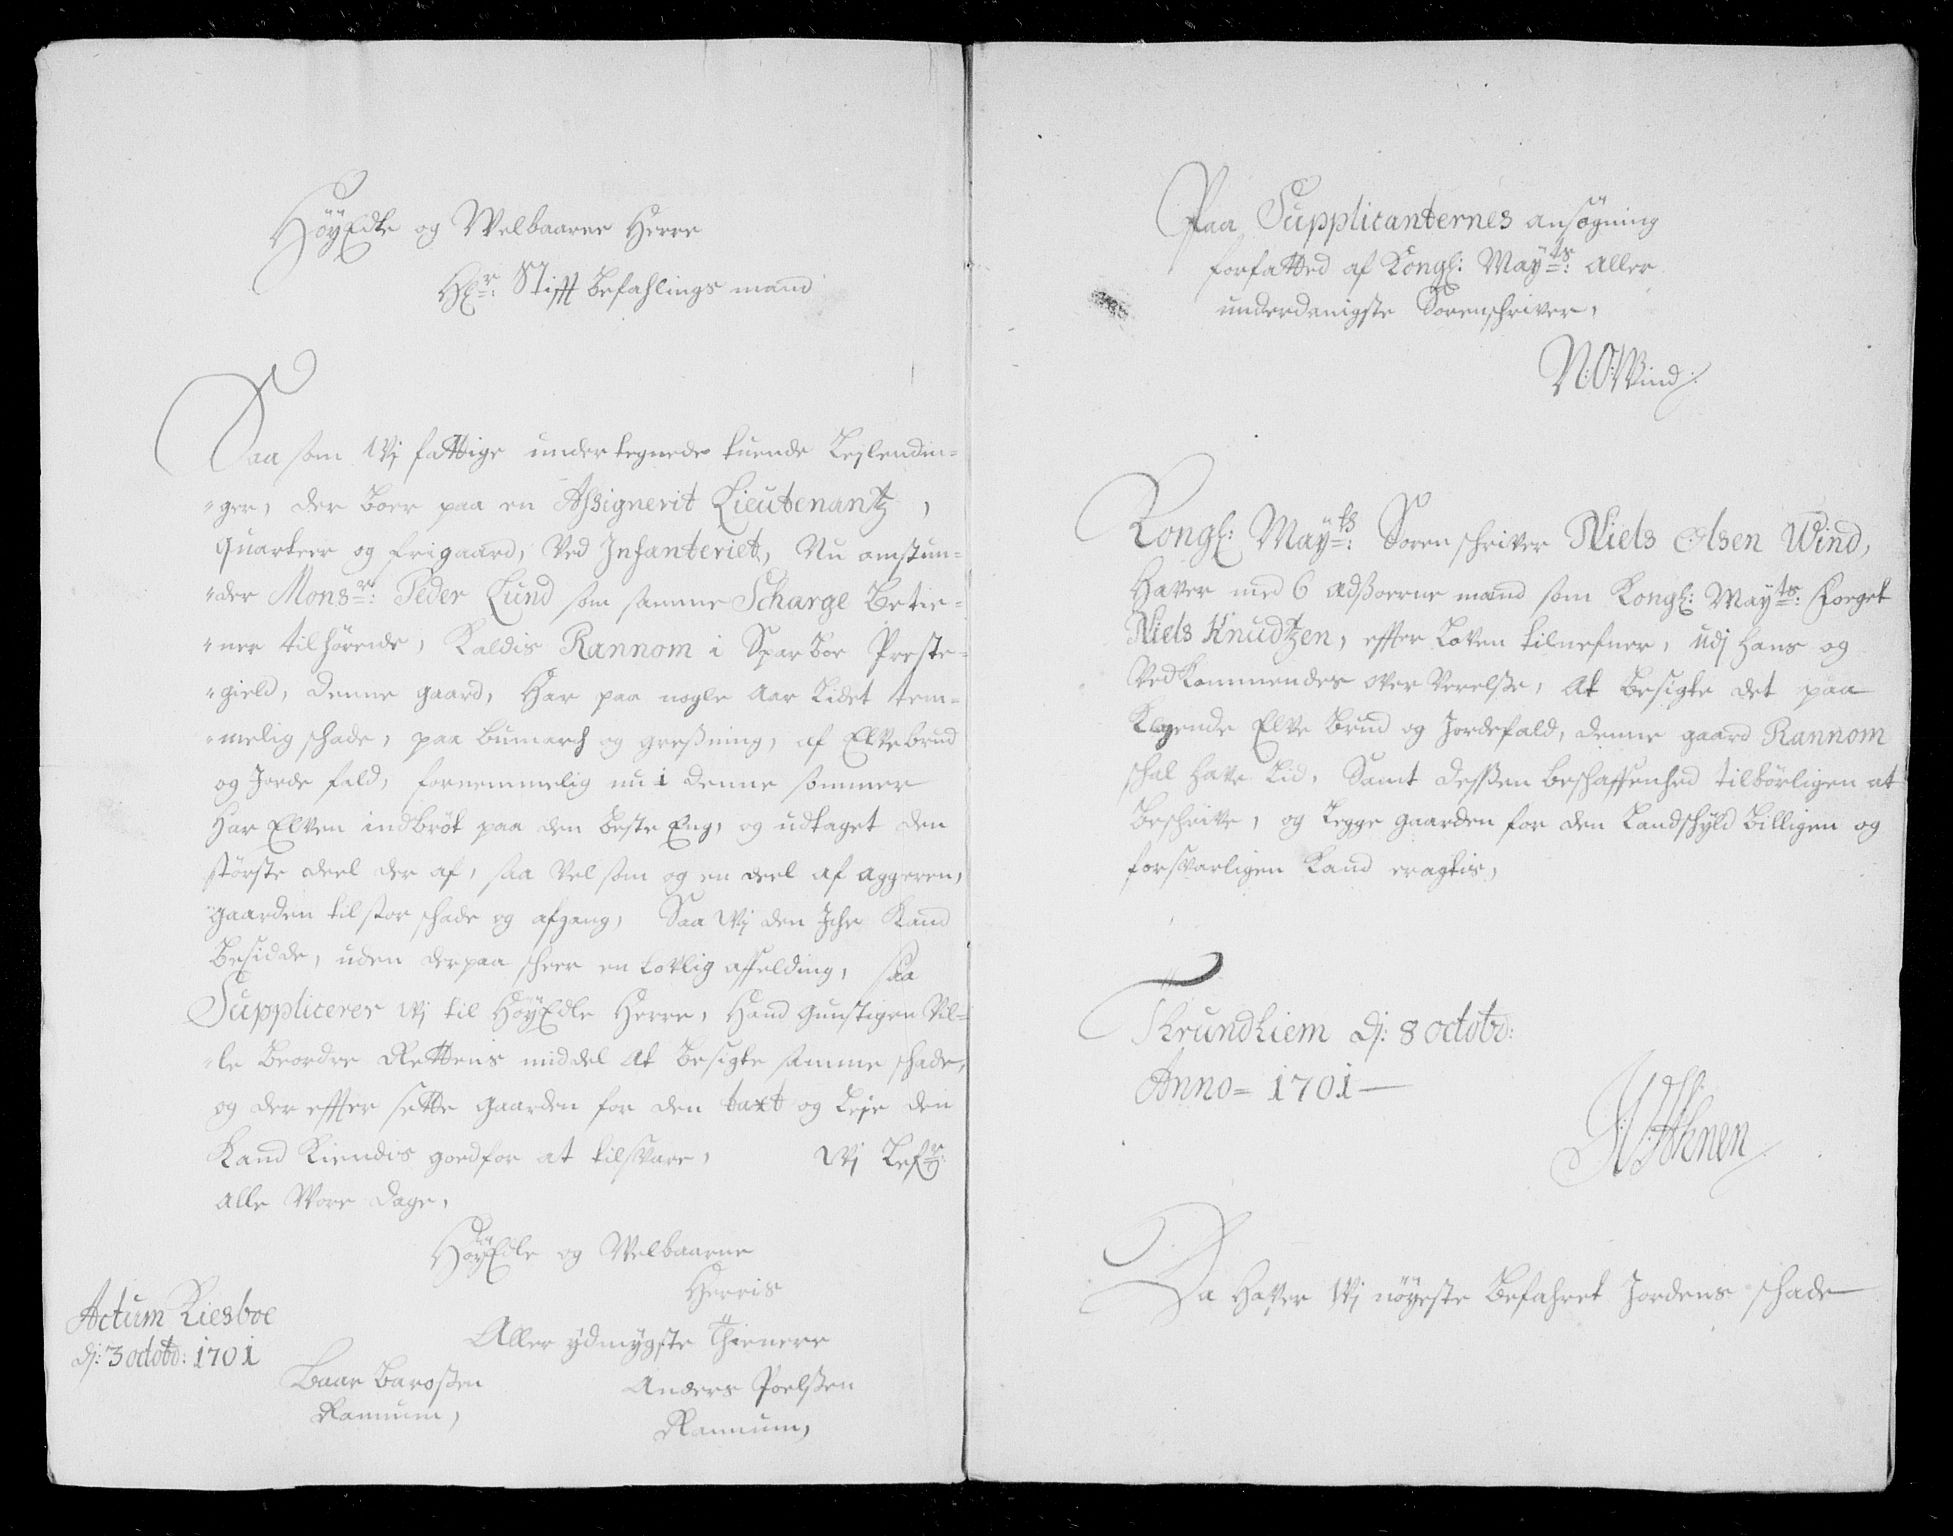 HöyEdle og Welbaarne Herre
Hr: Stifft befahlings mand
Saa som Wj fattige under tegnede tuende Leylendin=
=ger, der boer paa en Assignerit Lieutenantz,
quarteer og frigaard, Ved Infanteriet, Nu omstun=
=der Monsr: Peder Lund som samme Scharge Betie=
=ner tilhörende, Kaldis Rannom i Sparboe Preste=
=gield, denne gaard, Har paa nogle Aar Lidet tem=
=melig schade, paa bumarch og gresning, af Elvebrud
og Jorde fald, fornemmelig nu i denne sommer
Har Elven indbröt paa den beste Eng, og udtaget den
störste deel der af, saa vel som og en deel af Aggeren,
gaarden til stor schade og afgang, Saa Wj den Iche Kand
Besidde, uden derpaa scheer en Lovlig affelding, saa
Supplicerer Wj til HöyEdle Herre, Hand gunstigen Vil=
=le beordre Rettens middel At besigte samme schade,
og der effter sette gaarden for den taxt og Leje den
Kand Kiendis goed for at tilsvare, Wj Lefvr:
Alle Wore dage,
HöyEdle og Welbaarne
Herris
Aller ydmygste Thienere
Actum Riesboe
dj: 3 octobr: 1701
Baar Barossen
Rannum,
Anders Poelssen
Rannum,
Paa Supplicanternes ansögning
forfatted af Kongl: Mayts: Aller
underdanigste Sorenschriver,
N: O: Wind:
Kongl: Mayts: Soren schriver Niels Olsen Wind,
Haver med 6 Edsoerne mænd som Kongl: Mayts: Foget
Niels Knudtzen, effter Loven tilnefner, udj Hans og
Ved Kommendes over Verelsse, At besigte det paa
Klagende Elve brud og Jordefald, denne gaard Rannom
schal Have Lid, Samt dessen beschaffenhed tilbörligen at
Beschrive, og Legge gaarden for den Landschyld billigen og
forsvarligen Kand eragtis,
Thrundhiem dj: 8 octobr:
Anno= 1701
Da Haver Wj nöyeste befahret Jordens schade